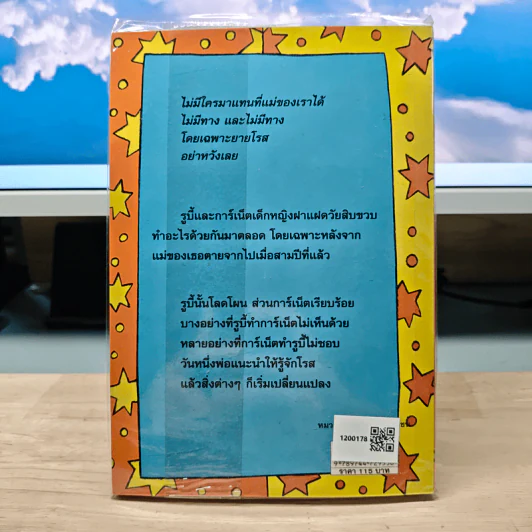 ไม่มีใครมาแทนที่แม่ของเราได้
ไม่มีทาง และไม่มีทาง
โดยเฉพาะยายโรส
อย่าหวังเลย
รูบี้และการ์เน็ตเด็กหญิงฝาแฝดวัยสิบขวบ
ทำอะไรด้วยกันมาตลอด โดยเฉพาะหลังจาก
แม่ของเธอตายจากไปเมื่อสามปีที่แล้ว
รูบี้นั้นโลดโผน ส่วนการ์เน็ตเรียบร้อย
บางอย่างที่รูบี้ทำการ์เน็ตไม่เห็นด้วย
หลายอย่างที่การ์เน็ตทำรูบี้ไม่ชอบ
วันหนึ่งพ่อแนะนำให้รู้จักโรส
แล้วสิ่งต่างๆ ก็เริ่มเปลี่ยนแปลง
1200178
ราคา 115 บาท